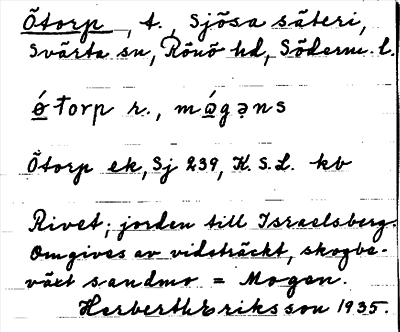 Ötorp, t., Sjösa säteri,
Svärta sn, Rönö hd, Söderm. l.
ó̱torp r., mó̱gəns
Ötorp ek, Sj 239, K.S.L. kb
Rivet; jorden till Israelsberg.
Omgives av vidsträckt, skogbe-
växt sandmo = Mogen.
Herberth Eriksson 1935.